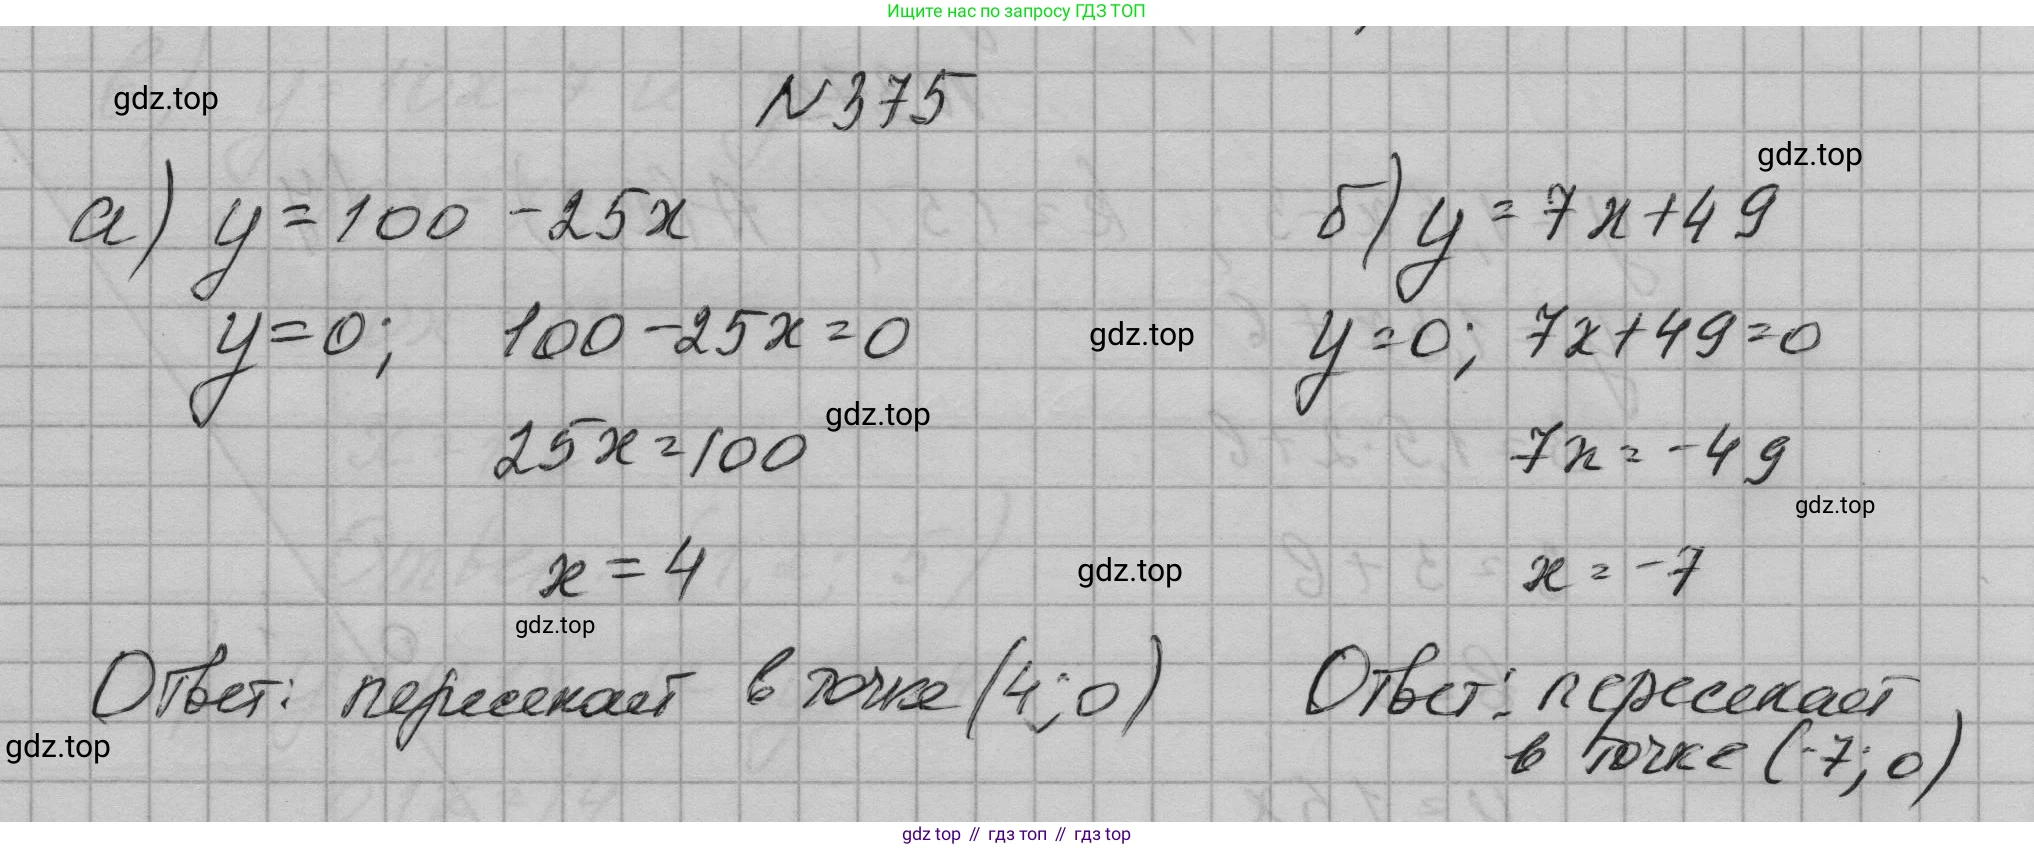 Ищите нас по запросу ГДЗ ТОП
gdz.top
N 375
gdz.top
а) y = 100 - 25x
y = 0; 100 - 25x = 0
gdz.top
25x = 100
gdz.top
x = 4
gdz.top
gdz.top
Ответ: пересекает в точке (4; 0)
gdz.top
б) y = 7x + 49
y = 0; 7x + 49 = 0
7x = -49
gdz.top
x = -7
Ответ: пересекает
в точке (-7; 0)
gdz top // гдз топ // гдз top